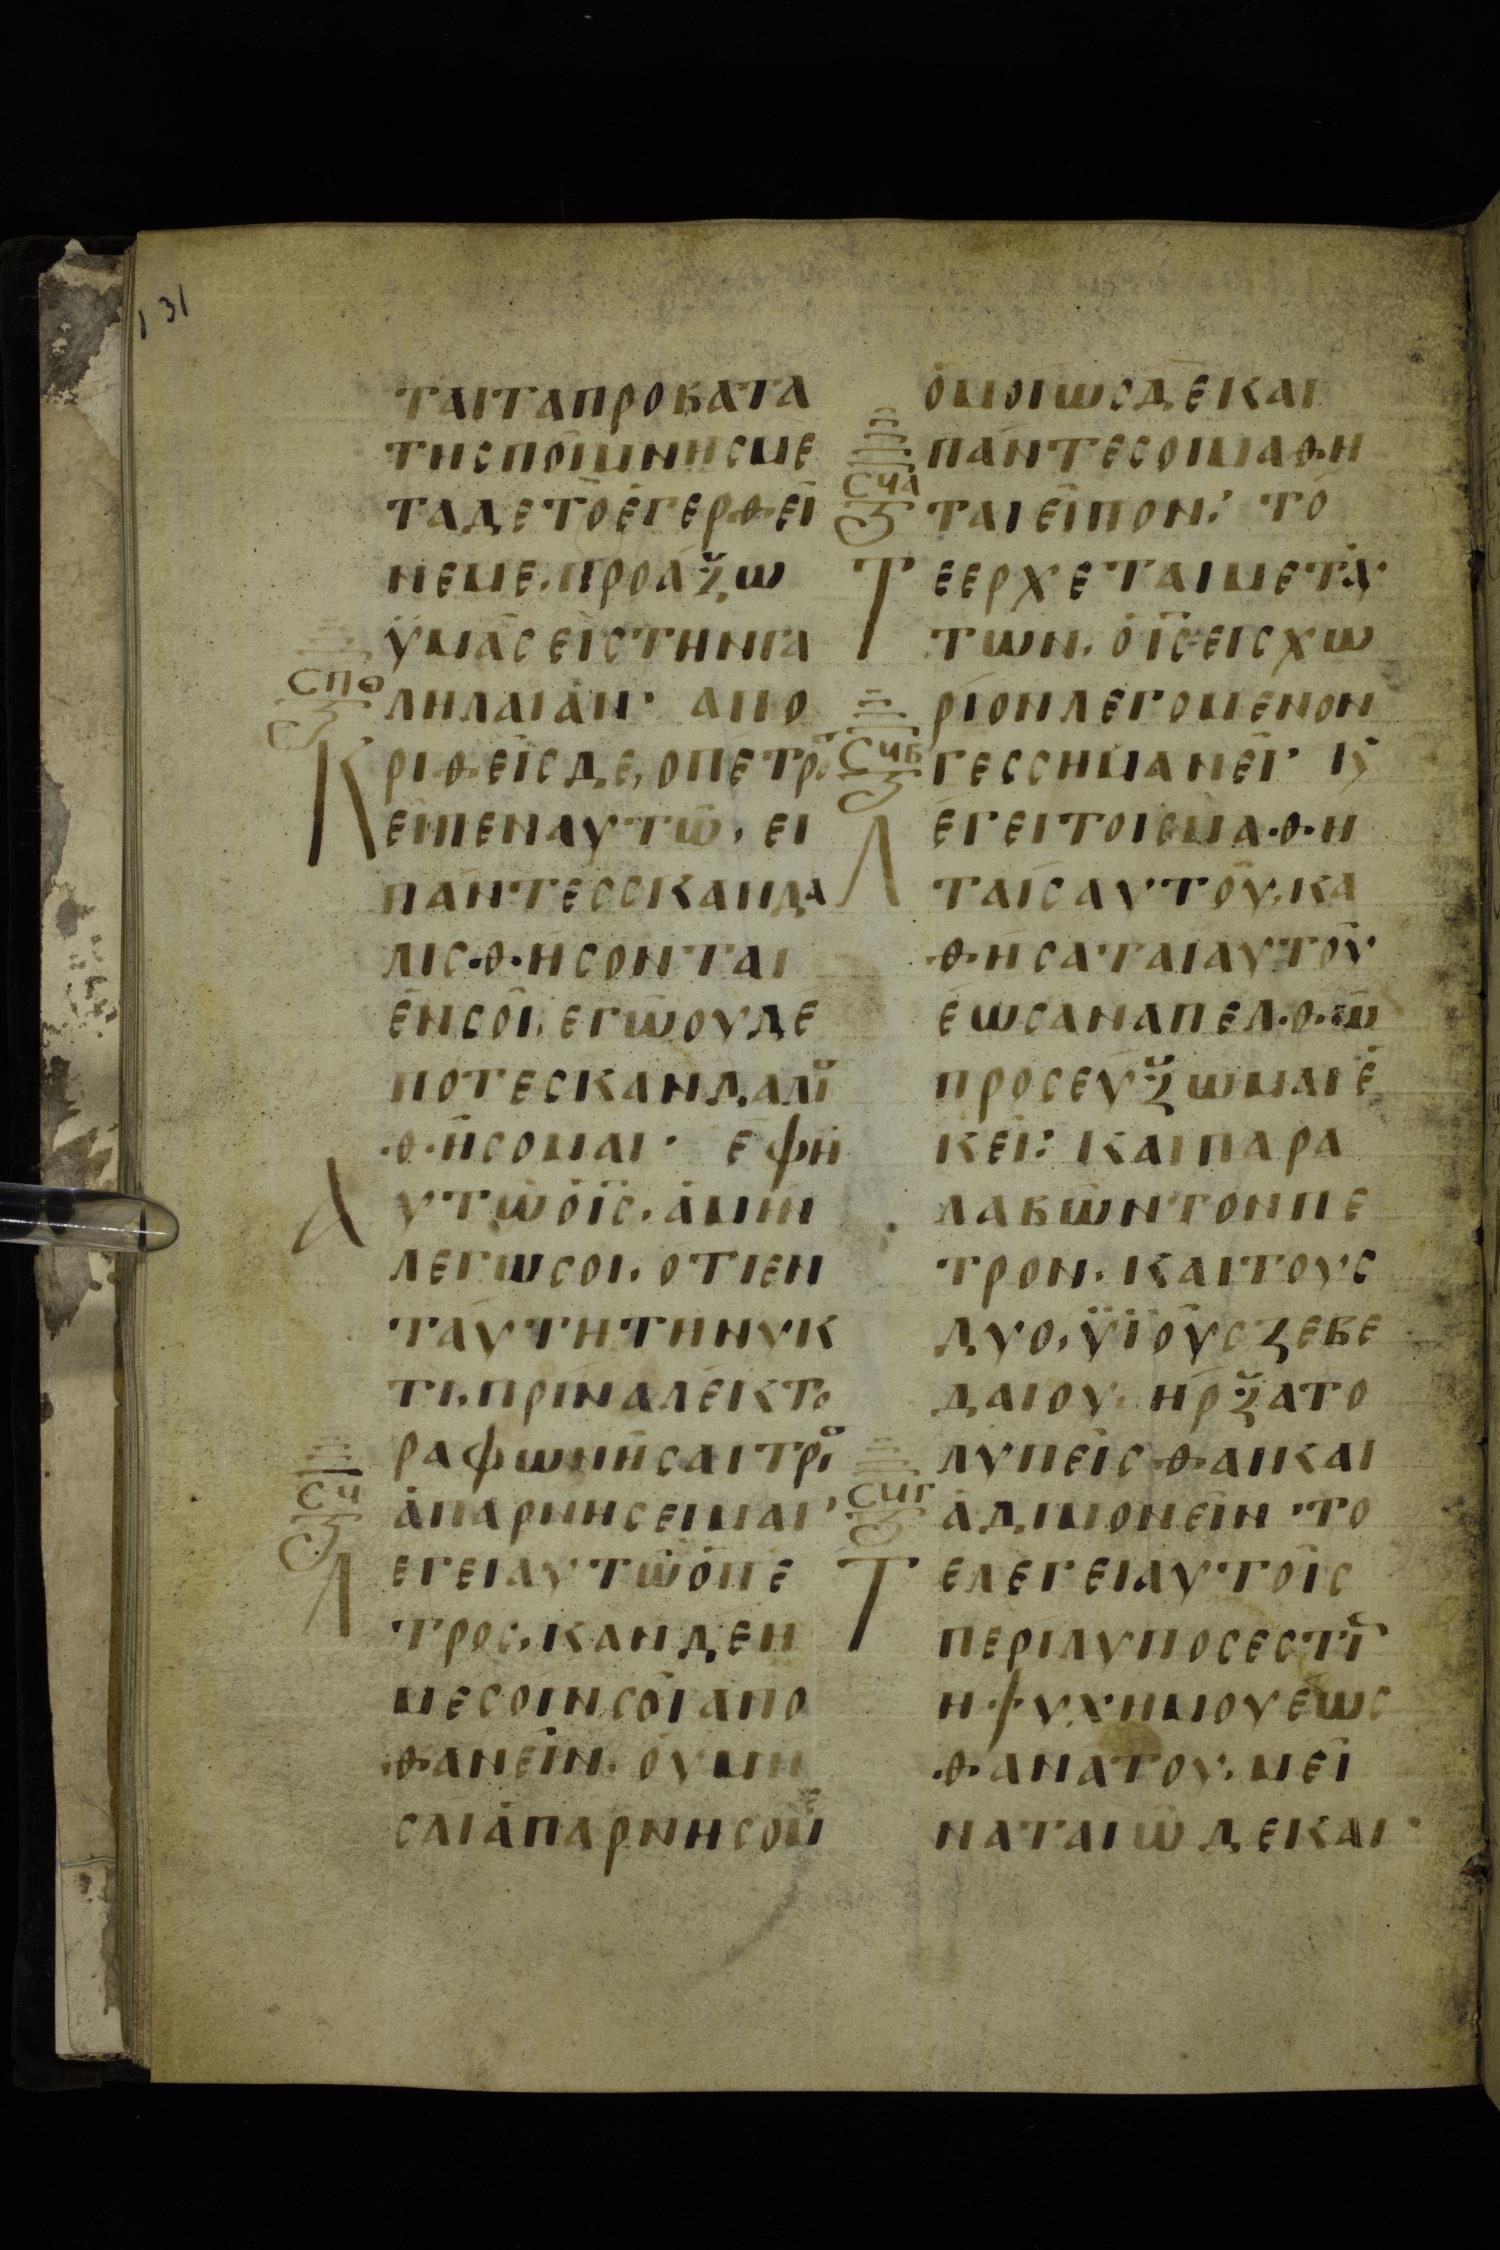 131
ΤΑΙΤΑΠΡΟΒΑΤΑ
ΤΗΣΠΟΙΜΝΗΣΜΕ
ΤΑΔΕΤΟΕΓΕΡΘΕΙ
ΝΕΜΕ,ΠΡΟΑΞΩ
ΫΜΑΣΕΙΣΤΗΝΓΑ
ΣΠΘ
Ζ
ΛΗΛΑΙΑΝ· ΑΠΟ
Κ ΡΙΘΕΙΣΔΕ,ΟΠΕΤΡΟ
ΕΙΠΕΝΑΥΤΩ, ΕΙ
ΠΑΝΤΕΣΣΚΑΝΔΑ
ΛΙΣΘΗΣΟΝΤΑΙ
ΕΝΣΟΙ, ΕΓΩΟΥΔΕ
ΠΟΤΕΣΚΑΝΔΑΛΙΣ
ΘΗΣΟΜΑΙ· ΕΦΗ
Α ΥΤΩΟΙΣ, ΑΜΗΝ
ΛΕΓΩΣΟΙ, ΟΤΙΕΝ
ΤΑΥΤΗΤΗΝΥΚ
ΤΙ,ΠΡΙΝΑΛΕΚΤΟ
ΡΑΦΩΝΗΣΑΙΤΡΙΣ
ΣϤ
Ζ
ΑΠΑΡΝΗΣΕΙΜΑΙ·
Λ ΕΓΕΙΑΥΤΩΟΠΕ
ΤΡΟΣ,ΚΑΝΔΕΗ
ΜΕΣΟΙΝΣΟΙΑΠΟ
ΘΑΝΕΙΝ, ΟΥΜΗ
ΣΑΙΑΠΑΡΝΗΣΟΜΕ
ΟΜΟΙΩΣΔΕΚΑΙ
ΠΑΝΤΕΣΟΙΜΑΘΗ
ΣϤΑ
Ζ
ΤΑΙΕΙΠΟΝ: ΤΟ
Τ ΕΕΡΧΕΤΑΙΜΕΤΑΥ
ΤΩΝ, ΟΙΣΕΙΣΧΩ
ΡΙΟΝΛΕΓΟΜΕΝΟΝ
ΣϤΒ
Ζ
ΓΕΣΣΗΜΑΝΕΙ· Κ
Λ ΕΓΕΙΤΟΙΣΜΑΘΗ
ΤΑΙΣΑΥΤΟΥ,ΚΑ
ΘΗΣΑΤΑΙΑΥΤΟΥ
ΕΩΣΑΝΑΠΕΛΘΩ
ΠΡΟΣΕΥΞΩΜΑΙΕ
ΚΕΙ: ΚΑΙΠΑΡΑ
ΛΑΒΩΝΤΟΝΠΕ
ΤΡΟΝ, ΚΑΙΤΟΥΣ
ΔΥΟ, ΫΪΟΥΣΖΕΒΕ
ΔΑΙΟΥ, ΗΡΞΑΤΟ
ΛΥΠΕΙΣΘΑΙΚΑΙ
ΣϤΓ
Ζ
ΑΔΙΜΟΝΕΙΝ·ΤΟ
Τ ΕΛΕΓΕΙΑΥΤΟΙΣ
ΠΕΡΙΛΥΠΟΣΕΣΤΙ
ΗΨΥΧΗΜΟΥΕΩΣ
ΘΑΝΑΤΟΥ, ΜΕΙ
ΝΑΤΑΙΩΔΕΚΑΙ·